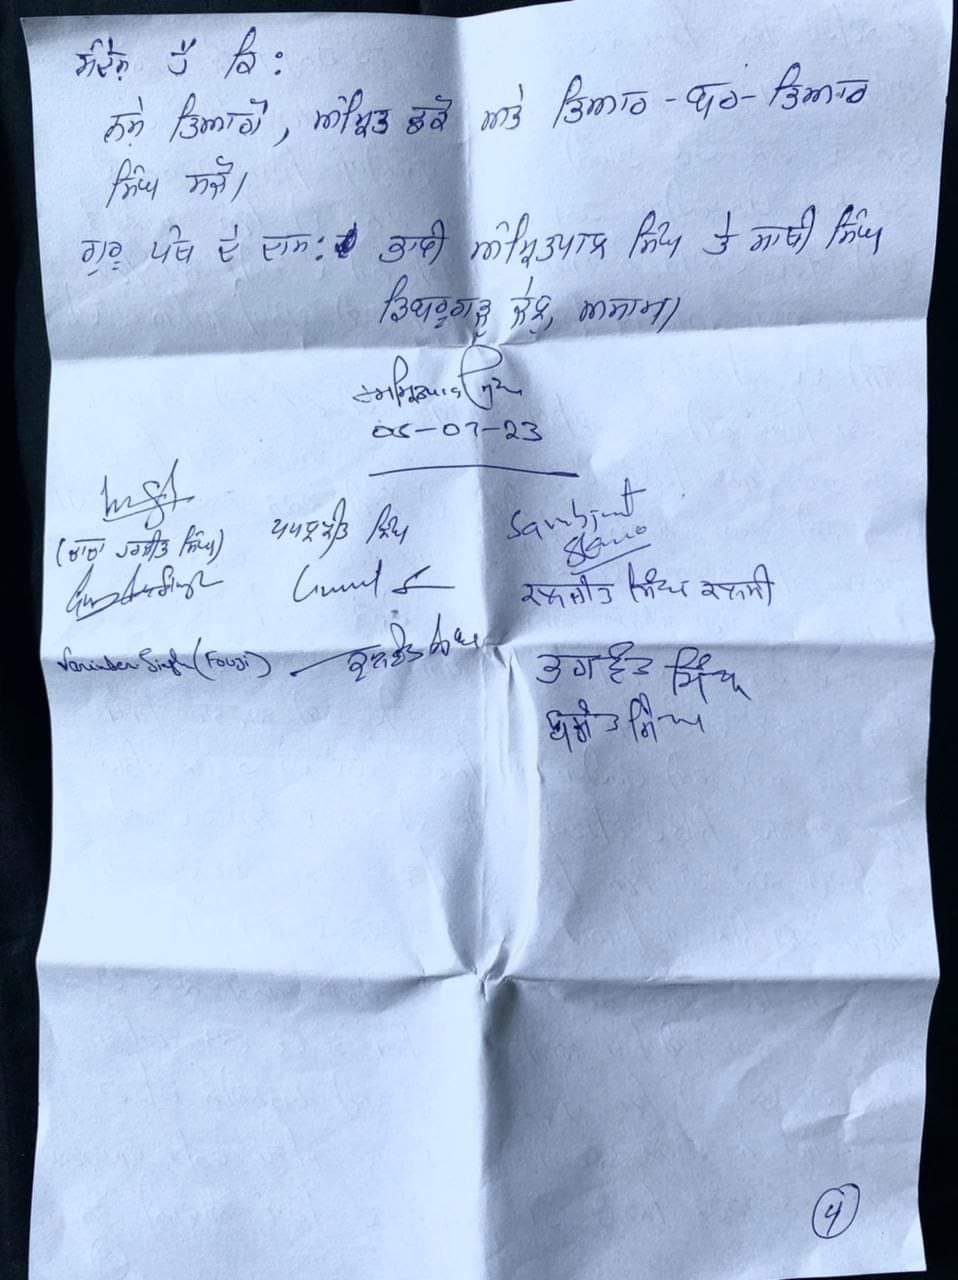 ਸੰਦੇਸ਼ ਹੈ ਕਿ:
ਨਸ਼ੇ ਤਿਆਗੋ, ਅੰਮ੍ਰਿਤ ਛਕੋ ਅਤੇ ਤਿਆਰ-ਬਰ-ਤਿਆਰ
ਸਿੰਘ ਸਜੋ।
ਗੁਰੂ ਪੰਥ ਦੇ ਦਾਸ: ਭਾਈ ਅੰਮ੍ਰਿਤਪਾਲ ਸਿੰਘ ਤੇ ਸਾਥੀ ਸਿੰਘ
ਡਿਬਰੂਗੜ੍ਹ ਜੇਲ੍ਹ, ਅਸਾਮ।
ਅਮ੍ਰਿਤਪਾਲ ਸਿੰਘ
05-07-23
(ਚਾਚਾ ਹਰਜੀਤ ਸਿੰਘ) ਪਪਲਪ੍ਰੀਤ ਸਿੰਘ Sarabjeet
ਕੁਲਵੰਤ ਸਿੰਘ
ਦਲਜੀਤ ਸਿੰਘ ਕਲਸੀ
Varinder Singh (Fouji)
ਭਗਵੰਤ ਸਿੰਘ
ਬਸੰਤ ਸਿੰਘ
4